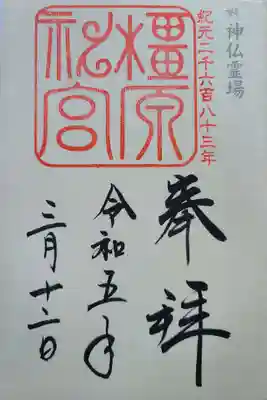 神仏霊場
紀元二千六百八十三年
橿原
神宮
奉拝
令和五年
三月十二日